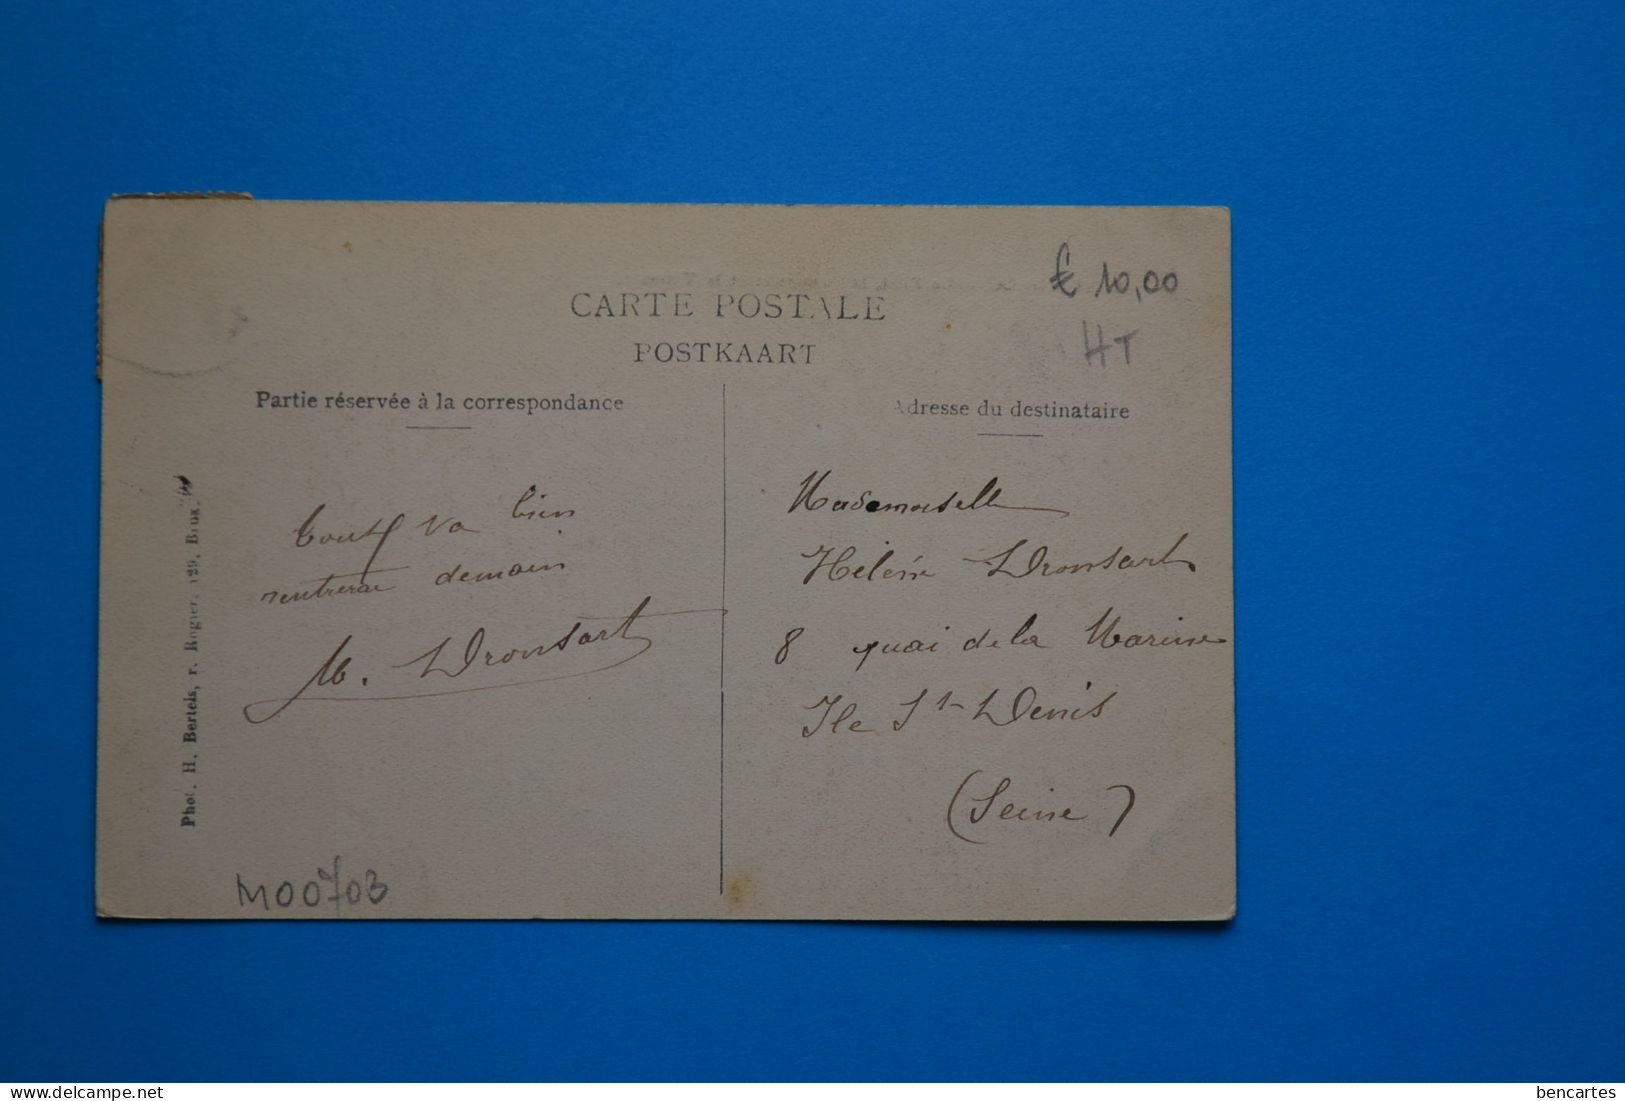 € 10,00
HT
CARTE POSTALE
POSTKAART
Partie réservée à la correspondance
Adresse du destinataire
tout va bien
rentrerai demain
M. Dronsart
Mademoiselle
Hélène Dronsart
8 quai de la Marine
Ile St Denis
(Seine)
Phot. H. Bertels, r. Rogier, 129, Brux.
M00703
delcampe.net
bencartes